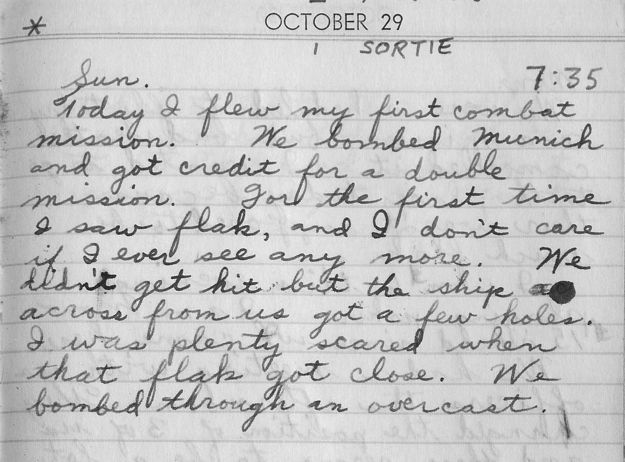 *
OCTOBER 29
1 SORTIE
Sun. 7:35
Today I flew my first combat
mission. We bombed Munich
and got credit for a double
mission. For the first time
I saw flak, and I don't care
if I ever see any more. We
didn't get hit but the ship
across from us got a few holes.
I was plenty scared when
that flak got close. We
bombed through an overcast.